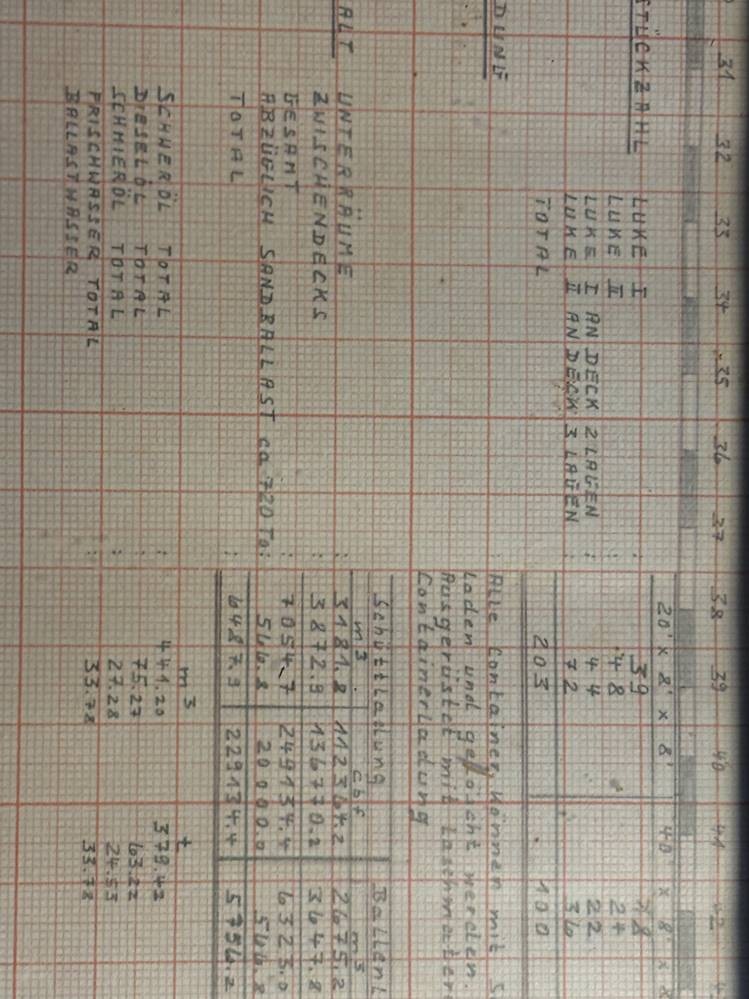 31 32 33 34 35 36 37 38 39 40 41 42
20' x 8' x 8' 40' x 8' x 8
TÜCKZAHL LUKE I : 39 18
LUKE II : 48 24
LUKE I AN DECK 2 LAGEN : 44 22
LUKE II AN DECK 3 LAGEN : 72 36
TOTAL 203 100
DUNG : Alle Container können mit S
laden und gelöscht werden.
Ausgerüstet mit Laschmater
Containerladung
Schüttladung Ballenl
m³ cbf m³
ALT UNTERRÄUME : 3181.8 112364.2 2675.2
ZWISCHENDECKS : 3872.9 136770.2 3647.8
GESAMT : 7054.7 249134.4 6323.0
ABZÜGLICH SANDBALLAST ca 720 To: 566.8 20000.0 566.8
TOTAL : 6487.9 229134.4 5756.2
m³ t
SCHWERÖL TOTAL : 441.20 379.42
DIESELÖL TOTAL : 75.27 63.22
SCHMIERÖL TOTAL : 27.28 24.53
FRISCHWASSER TOTAL : 33.78 33.78
BALLASTWASSER